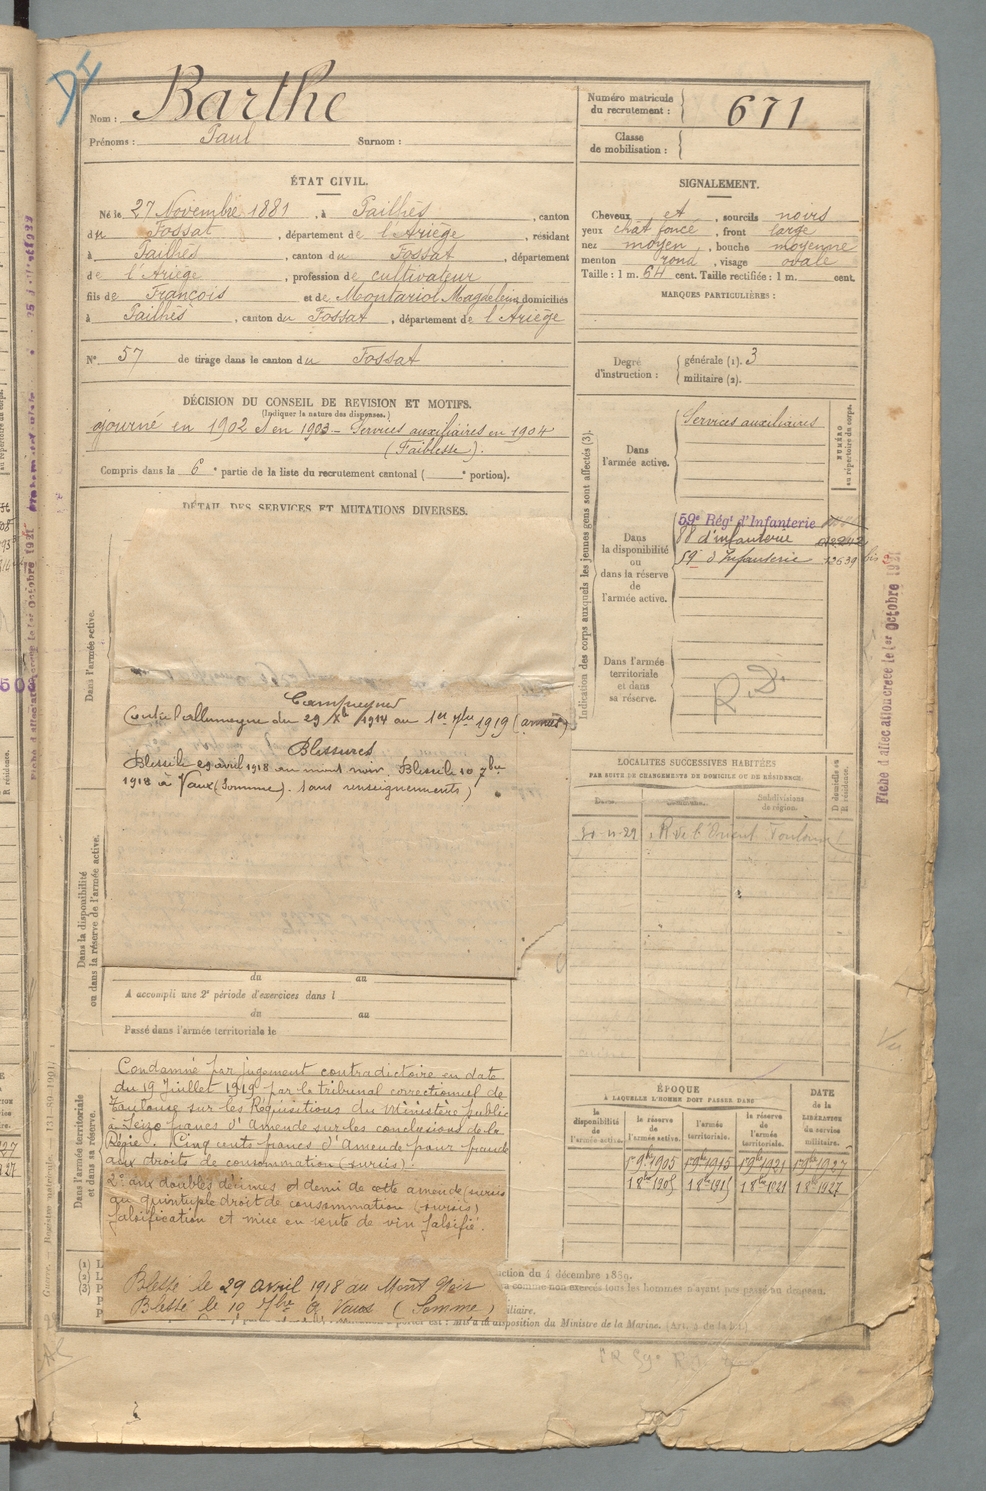 Nom : Barthe
Prénoms : Paul Surnom :
Numéro matricule du recrutement : 671
Classe de mobilisation :
ÉTAT CIVIL.
Né le 27 Novembre 1881, à Pailhès, canton
du Fossat, département de l'Ariège, résidant
à Pailhès, canton du Fossat, département
de l'Ariège, profession de cultivateur
fils de François et de Montariol Magdeleine domiciliés
à Pailhès, canton du Fossat, département de l'Ariège
N° 57 de tirage dans le canton du Fossat
SIGNALEMENT.
Cheveux et, sourcils noirs
yeux chat foncé, front large
nez moyen, bouche moyenne
menton rond, visage ovale
Taille : 1 m. 64 cent. Taille rectifiée : 1 m. cent.
MARQUES PARTICULIÈRES :
Degré d'instruction : générale (1). 3
militaire (2).
DÉCISION DU CONSEIL DE REVISION ET MOTIFS.
(Indiquer la nature des dispenses.)
ajourné en 1902 et en 1903 – Services auxiliaires en 1904
(Faiblesse).
Compris dans la 6e partie de la liste du recrutement cantonal ( e portion).
DÉTAIL DES SERVICES ET MUTATIONS DIVERSES.
Dans l'armée active.
Campagnes
Contre l'allemagne du 29 Xbre 1914 au 1er 7bre 1919 (armées)
Blessures
Blessé le 29 avril 1918 au mont noir. Blessé le 10 7bre
1918 à Vaux (Somme). sans renseignements)
Dans la disponibilité
ou dans la réserve de l'armée active.
du au
A accompli une 2e période d'exercices dans l
du au
Passé dans l'armée territoriale le
Dans l'armée territoriale
et dans sa réserve.
Condamné par jugement contradictoire en date
du 19 Juillet 1919 par le tribunal correctionnel de
Toulouse sur les Réquisitions du Ministère public
à Seize francs d'Amende sur les conclusions de la
Régie. Cinq cents francs d'Amende pour fraude
aux droits de consommation (sursis).
2° aux doubles décimes et demi de cette amende (sursis
au quintuple droit de consommation (sursis)
falsification et mise en vente de vin falsifié.
Blessé le 29 avril 1918 au Mont Noir
Blessé le 10 7bre à Vaux (Somme)
Indication des corps auxquels les jeunes gens sont affectés (3).
NUMÉRO
au répertoire du corps.
Dans l'armée active.
Services auxiliaires
Dans la disponibilité ou dans la réserve de l'armée active.
59e Régt d'Infanterie
88 d'infanterie
59e d'Infanterie 12639 bis
Dans l'armée territoriale et dans sa réserve.
LOCALITÉS SUCCESSIVES HABITÉES
PAR SUITE DE CHANGEMENTS DE DOMICILE OU DE RÉSIDENCE.
Subdivisions de région.
D domicile ou R résidence.
R de l'Orient Toulouse
ÉPOQUE
À LAQUELLE L'HOMME DOIT PASSER DANS
la disponibilité de l'armée active.
la réserve de l'armée active.
l'armée territoriale.
la réserve de l'armée territoriale.
DATE de la LIBÉRATION du service militaire.
1er 9bre 1905 1er 9bre 1915 1er 9bre 1921 1er 9bre 1927
1 8bre 1905 1 8bre 1915 1 8bre 1921 1 8bre 1927
ction du 4 décembre 1889.
comme non exercés tous les hommes n'ayant pas passé au drapeau.
iliaire.
mis à la disposition du Ministre de la Marine.
Fiche d'affectation créée le 1er Octobre 1921